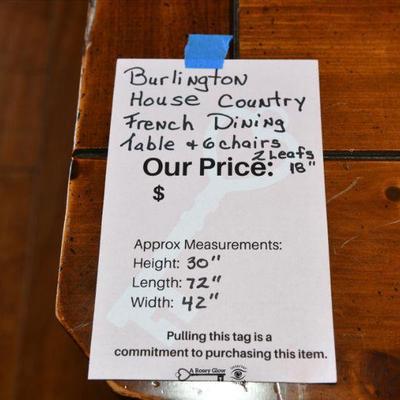 Burlington
House Country
French Dining
Table + 6 chairs
2 Leafs
Our Price: 18"
$
Approx Measurements:
Height: 30"
Length: 72"
Width: 42"
Pulling this tag is a
commitment to purchasing this item.
A Rosey Glow